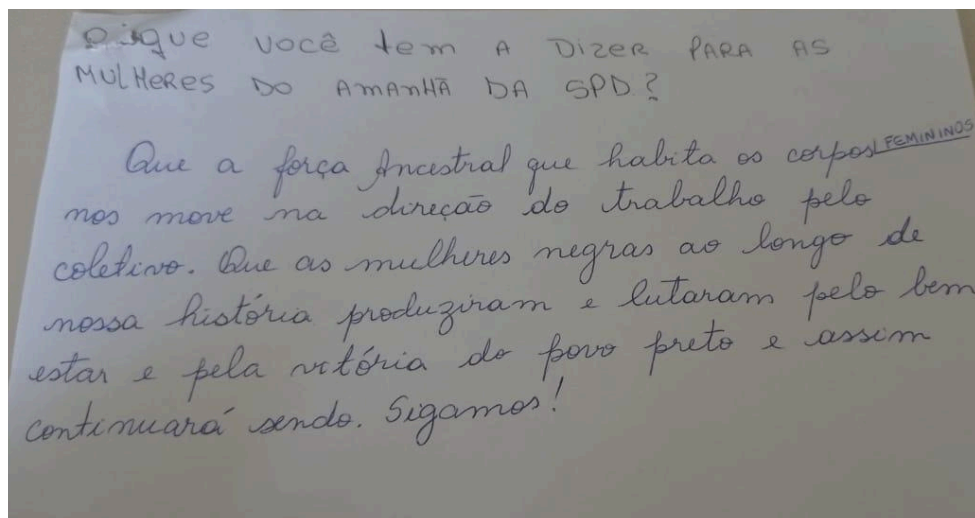 O que você tem A Dizer PARA AS
MULHERES DO AMANHÃ DA SPD?
Que a força Ancestral que habita os corpos FEMININOS
nos move na direção do trabalho pelo
coletivo. Que as mulheres negras ao longo de
nossa história produziram e lutaram pelo bem
estar e pela vitória do povo preto e assim
continuará sendo. Sigamos!